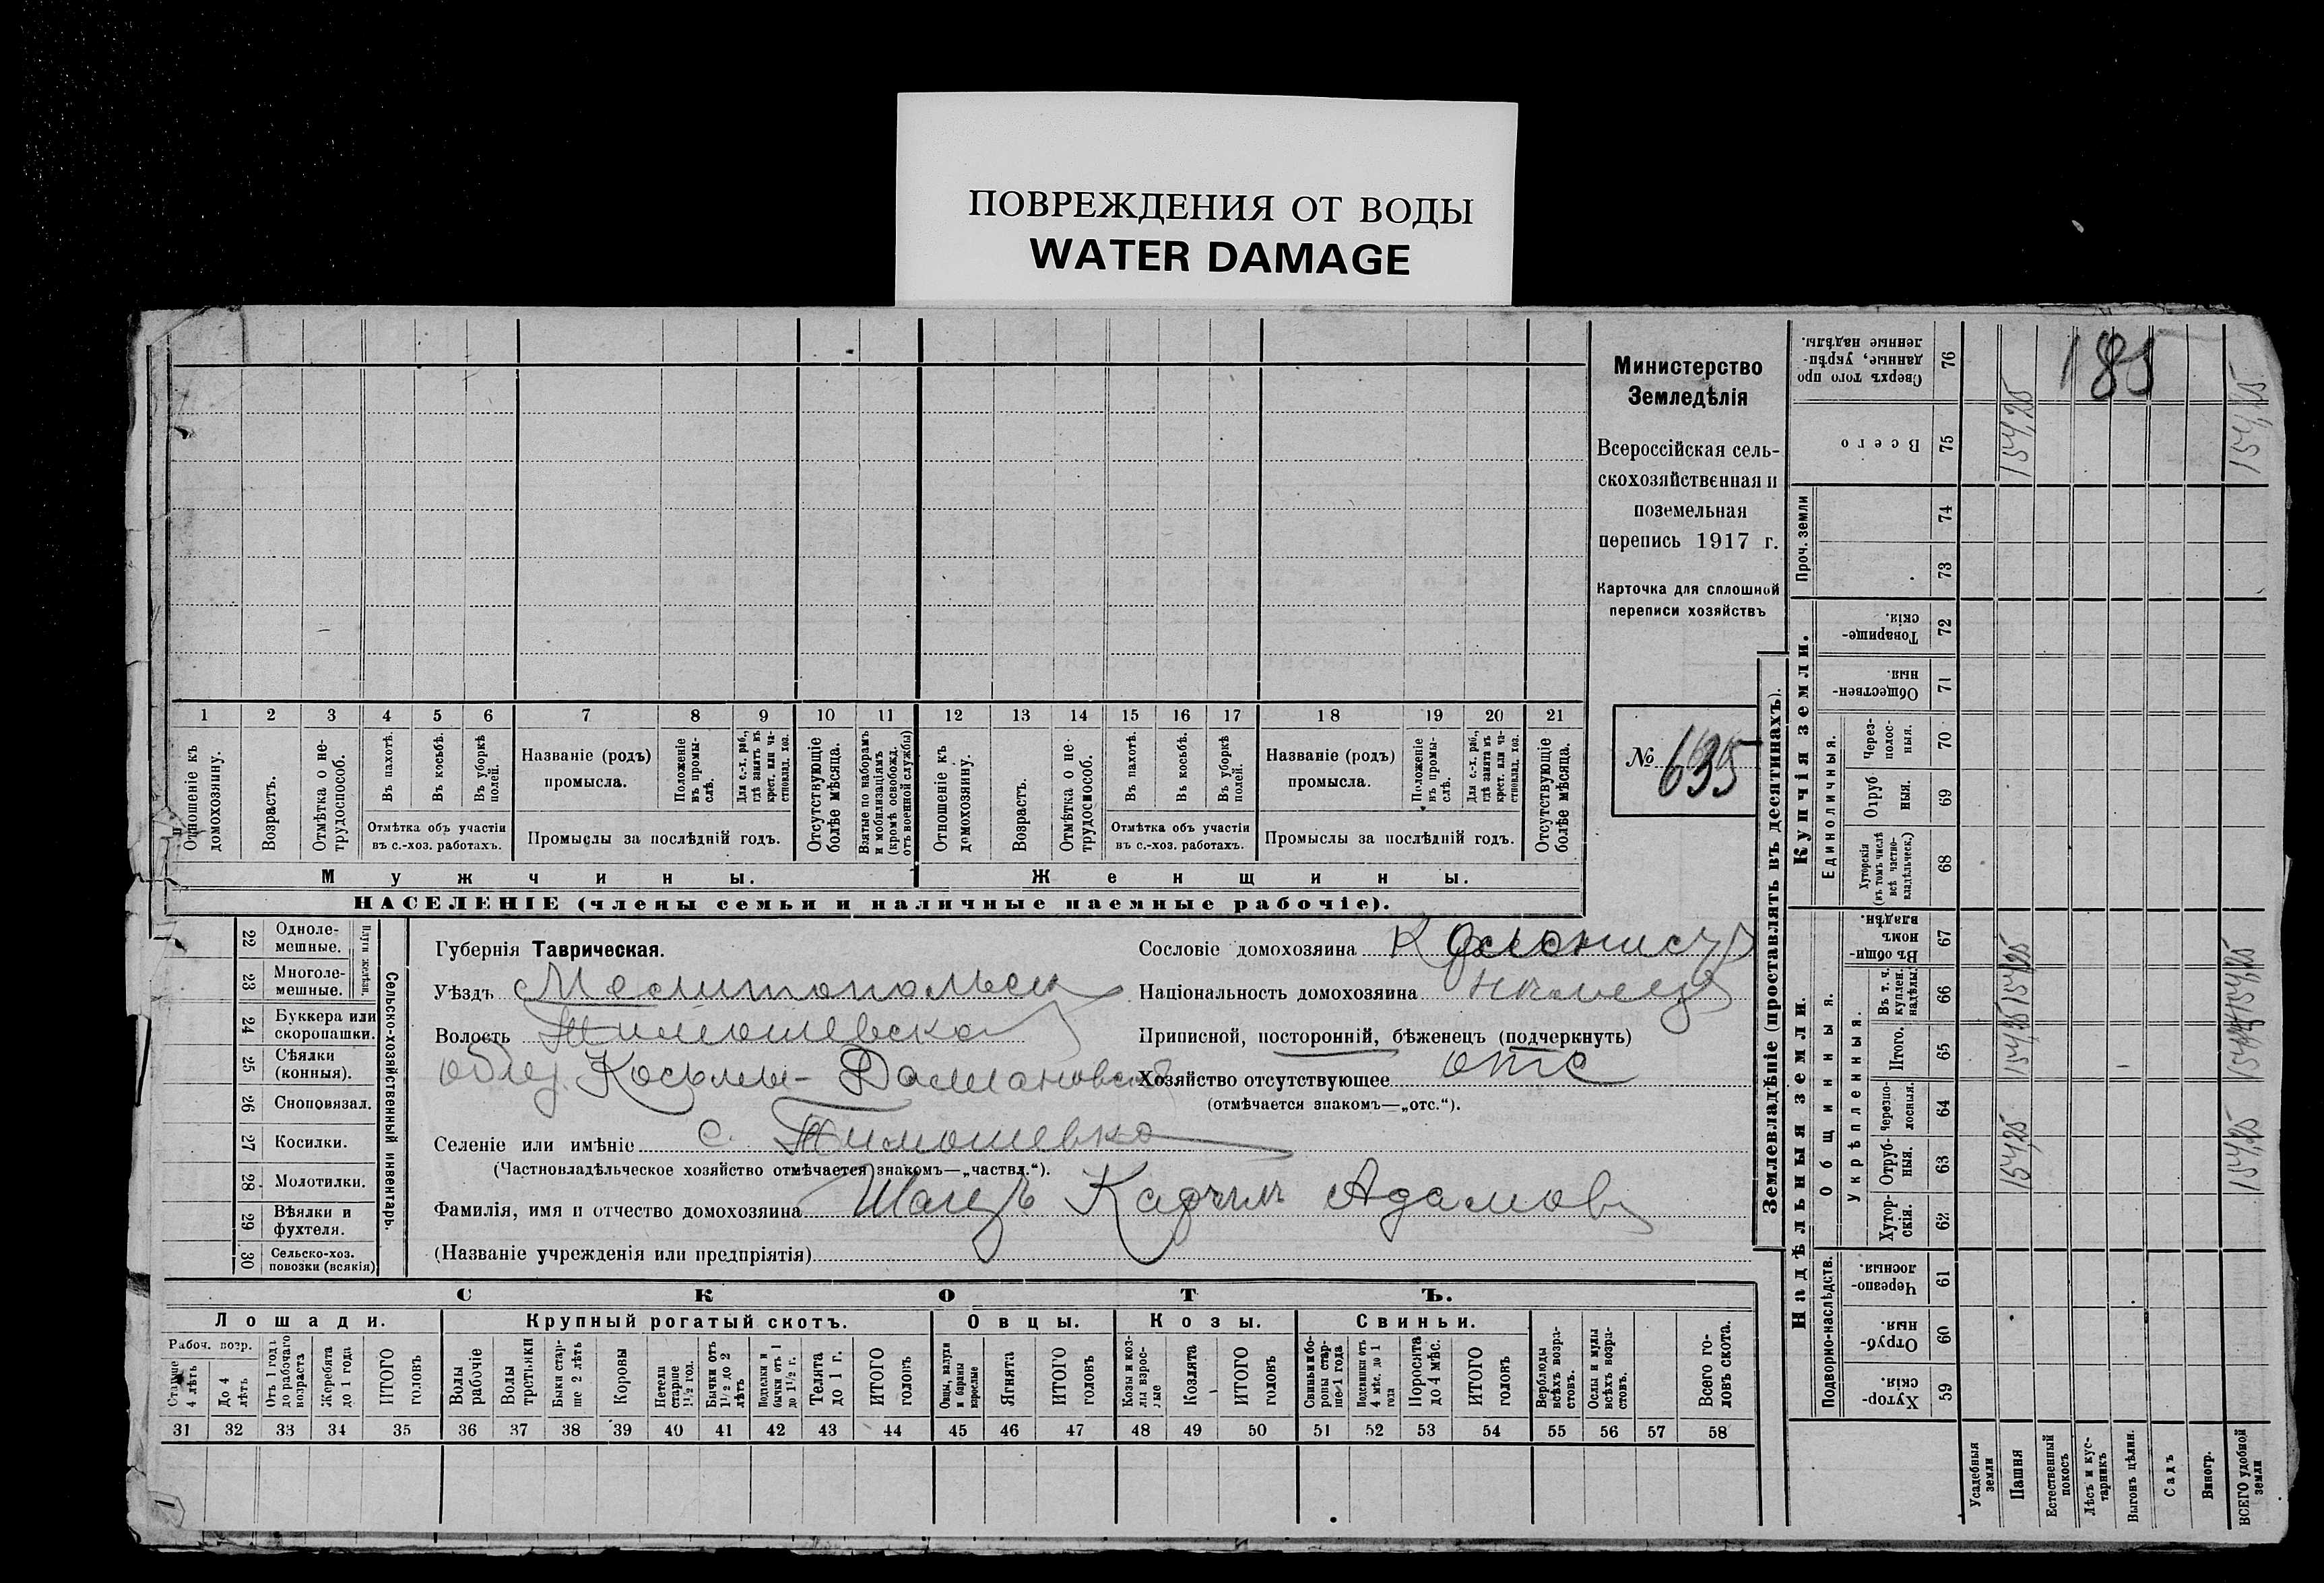 ПОВРЕЖДЕНИЯ ОТ ВОДЫ
WATER DAMAGE
Министерство
Земледѣлія
Всероссійская сель-
скохозяйственная и
поземельная
перепись 1917 г.
Карточка для сплошной
переписи хозяйствъ
№ 635
1 2 3 4 5 6 7 8 9 10 11 12 13 14 15 16 17 18 19 20 21
Отношеніе къ домохозяину.
Возрастъ.
Отмѣтка о не-трудоспособ.
Въ пахотѣ.
Въ косьбѣ.
Въ уборкѣ полей.
Отмѣтка объ участіи
въ с.-хоз. работахъ.
Названіе (родъ)
промысла.
Положеніе въ промы-слѣ.
Для с.-х. раб., гдѣ занятъ въ крест. или ча-стновлад. хоз.
Промыслы за послѣдній годъ.
Отсутствующіе болѣе мѣсяца.
Взятые по наборамъ и мобилизаціямъ (кромѣ освобожд. отъ военной службы)
Отношеніе къ домохозяину.
Возрастъ.
Отмѣтка о не-трудоспособ.
Въ пахотѣ.
Въ косьбѣ.
Въ уборкѣ полей.
Отмѣтка объ участіи
въ с.-хоз. работахъ.
Названіе (родъ)
промысла.
Положеніе въ промы-слѣ.
Для с.-х. раб., гдѣ занята въ крест. или ча-стновлад. хоз.
Промыслы за послѣдній годъ.
Отсутствующіе болѣе мѣсяца.
Мужчины.
Женщины.
НАСЕЛЕНІЕ (члены семьи и наличные наемные рабочіе).
22 Одноле-мешные.
23 Многоле-мешные.
Плуги желѣзн.
24 Буккера или скоропашки.
25 Сѣялки (конныя).
26 Сноповязал.
27 Косилки.
28 Молотилки.
29 Вѣялки и фухтеля.
30 Сельско-хоз. повозки (всякія)
Сельско-хозяйственный инвентарь.
Губернія Таврическая.
Уѣздъ Мелитопольск
Волость Тимошевская
Селеніе или имѣніе с. Тимошевка
(Частновладѣльческое хозяйство отмѣчается знакомъ—„частвл.“).
Сословіе домохозяина Колонистъ
Національность домохозяина нѣмецъ
Приписной, посторонній, бѣженецъ (подчеркнуть)
Хозяйство отсутствующее отс
(отмѣчается знакомъ—„отс.“).
Фамилія, имя и отчество домохозяина Адамов
(Названіе учрежденія или предпріятія)
СКОТЪ.
Лошади.
Крупный рогатый скотъ.
Овцы.
Козы.
Свиньи.
Рабоч. возр.
Старше 4 лѣтъ
До 4 лѣтъ
Отъ 1 года до рабочаго возраста
Жеребята до 1 года
ИТОГО головъ
Волы рабочіе
Волы третьяки
Быки стар-ше 2 лѣтъ
Коровы
Нетели старше 1½ год.
Бычки отъ 1½ до 2 лѣтъ
Подтелки и бычки отъ 1 до 1½ г.
Телята до 1 г.
ИТОГО головъ
Овцы, валухи и бараны взрослые
Ягнята
ИТОГО головъ
Козы и коз-лы взрос-лые
Козлята
ИТОГО головъ
Свиньи и бо-ровы стар-ше 1 года
Подсвинки отъ 4 мѣс. до 1 года
Поросята до 4 мѣс.
ИТОГО головъ
Верблюды всѣхъ возра-стовъ.
Ослы и мулы всѣхъ возра-стовъ.
Всего го-ловъ скота.
31 32 33 34 35 36 37 38 39 40 41 42 43 44 45 46 47 48 49 50 51 52 53 54 55 56 57 58
Землевладѣніе (проставлять въ десятинахъ).
Купчія земли.
Надѣльныя земли.
Проч. земли
Единоличныя.
Общинныя.
Укрѣпленныя.
Подворно-наслѣдств.
Сверхъ того про данные, укрѣп-ленные надѣлы. 76
Всего 75
74
73
Товарище-скія. 72
Обществен-ныя. 71
Через-полос-ныя. 70
Отруб ныя. 69
Хуторскія (въ томъ числѣ всѣ частно-владѣльческ.) 68
Въ общин-номъ владѣн. 67
Въ т. ч. куплен. надѣлы. 66
Итого. 65
Черезпо-лосныя. 64
Отруб-ныя. 63
Хутор-скія. 62
Черезпо-лосныя. 61
Отруб-ныя. 60
Хутор-скія. 59
Усадебныя земли
Пашня
Естественный покосъ
Лѣсъ и кус-тарникъ
Выгонъ цѣлин.
Садъ
Виногр.
ВСЕГО удобной земли
185
154,25
154,25
154,25
154,25